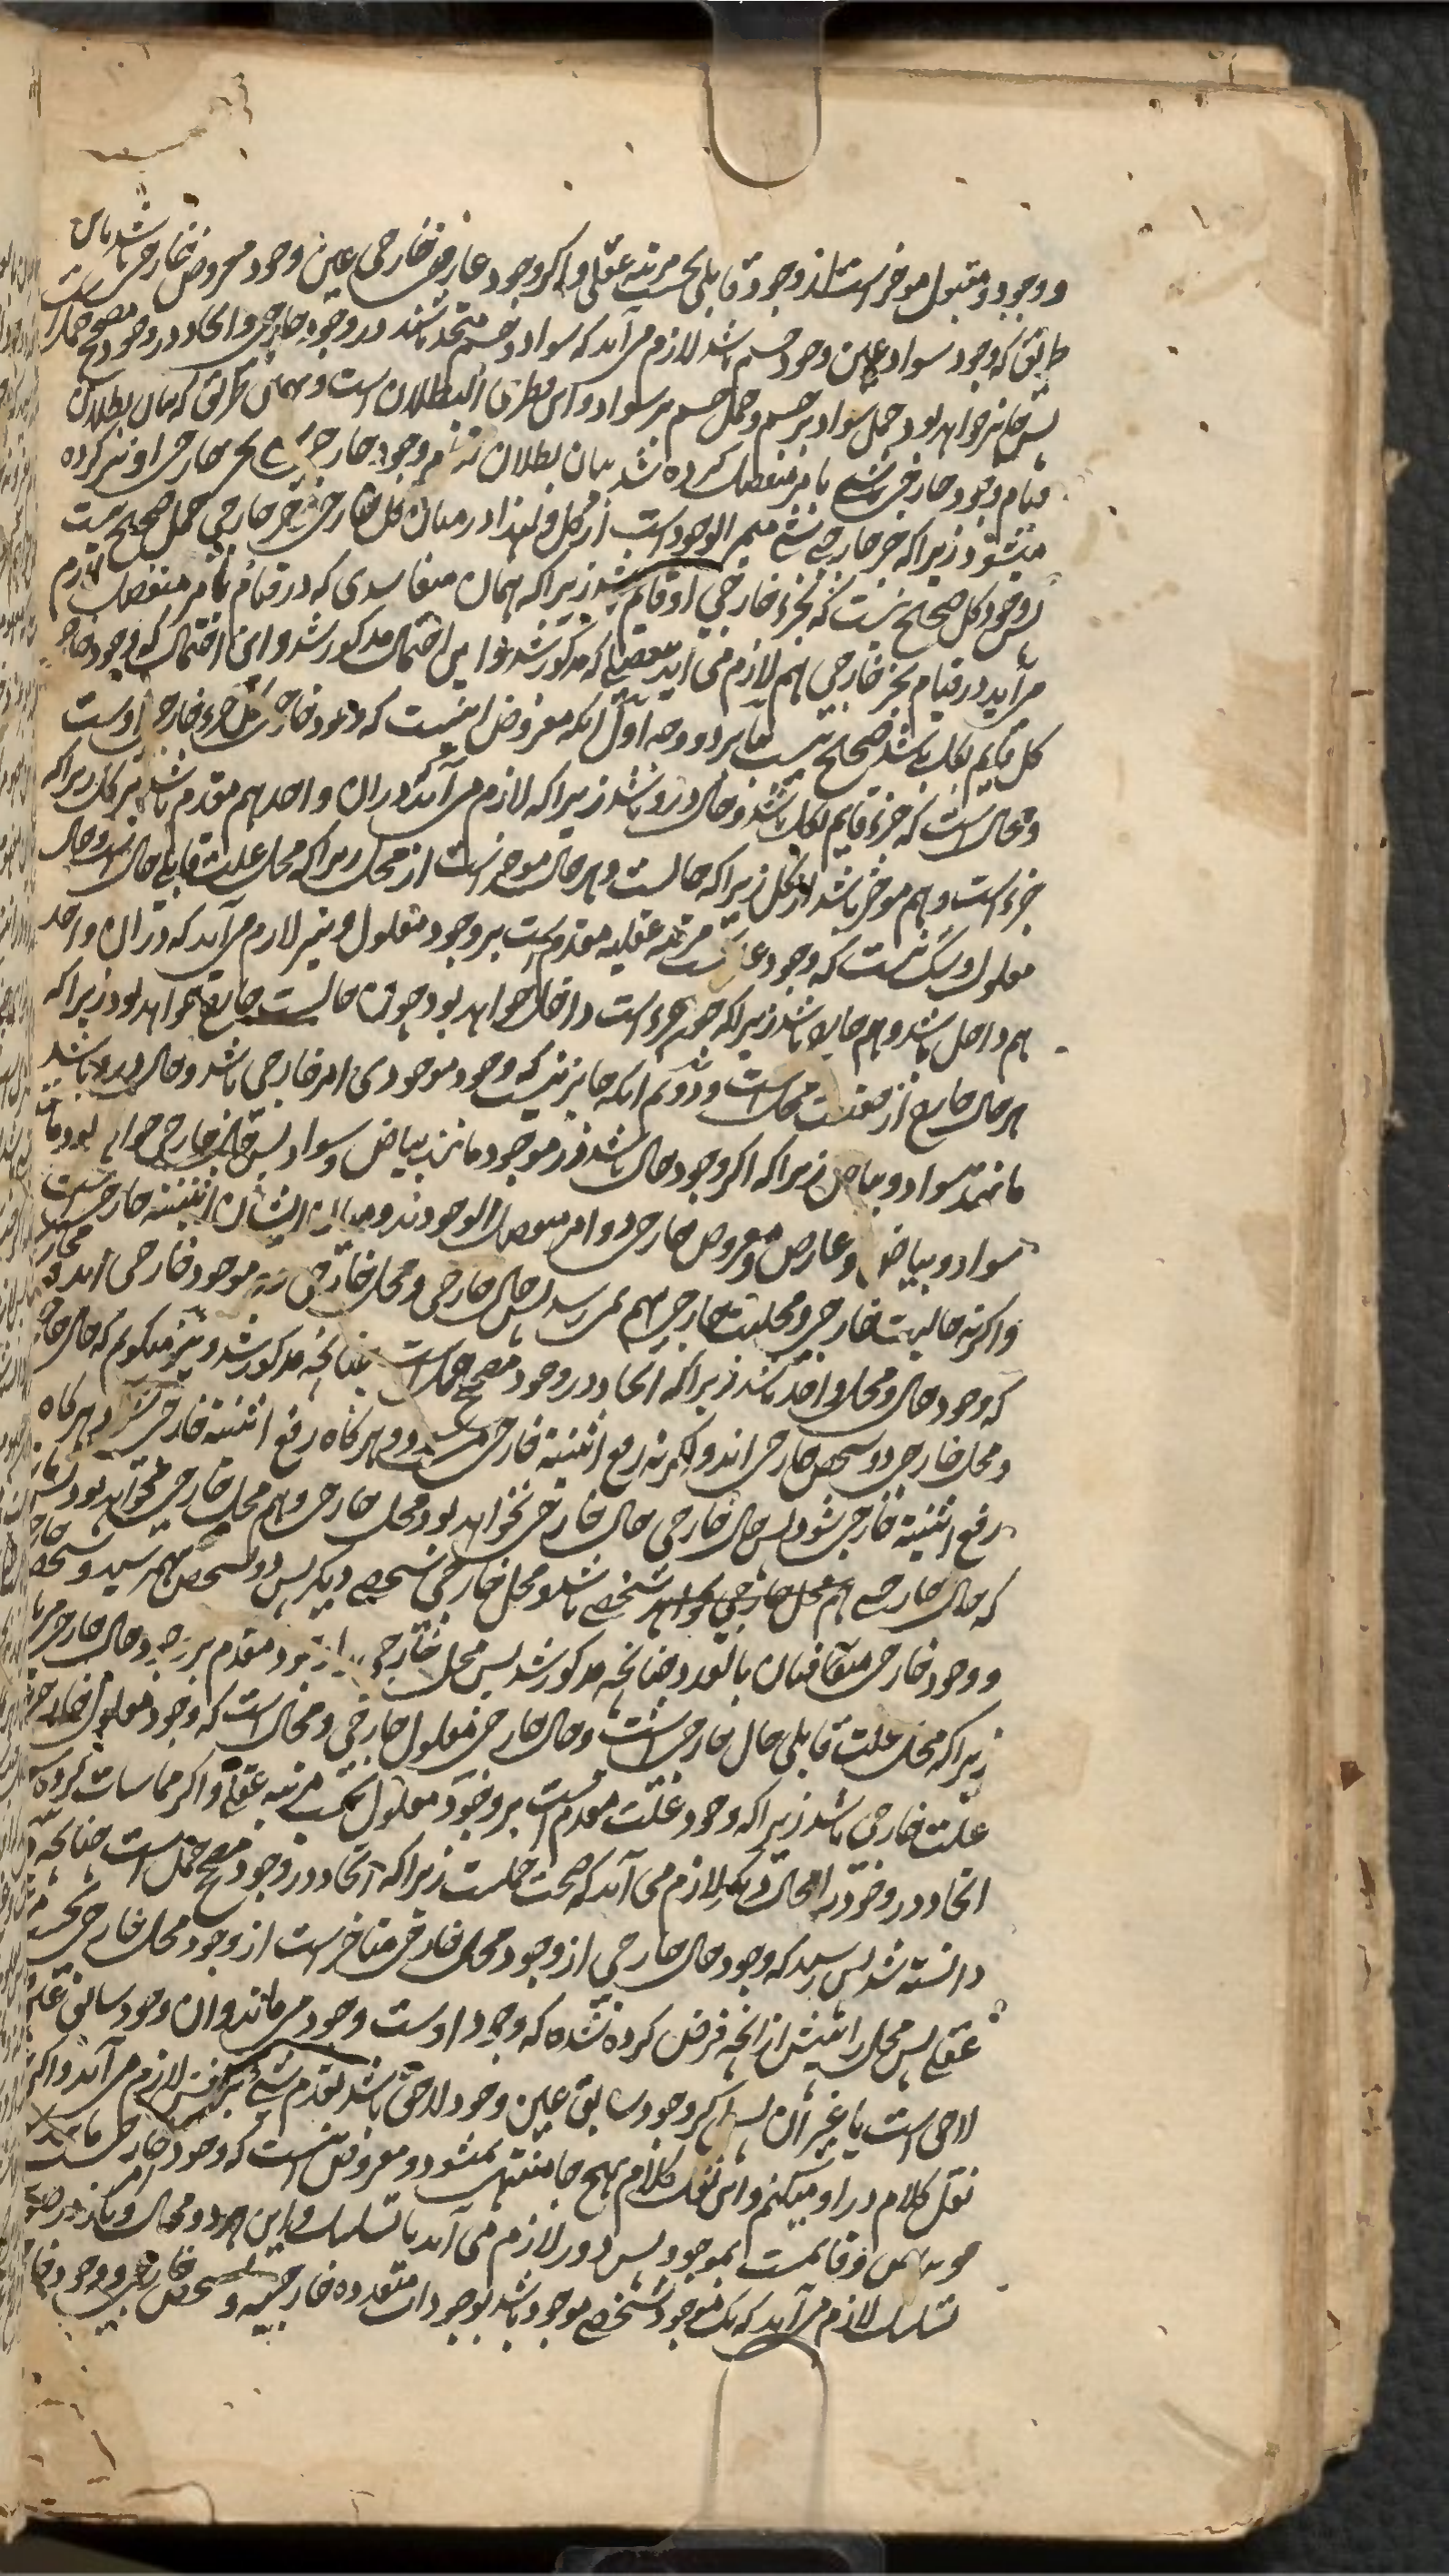 و وجود مقبول موخر است از وجود قابلی بحسب مرتبه عقلی و اگر وجود عارض خارجی عین وجود معروض خارجی باشد باین
طریق که وجود سواد عین وجود جسم باشد لازم می‌آید که سواد و جسم متحد باشند در وجود خارجی و اتحاد در وجود مصحح حمل است
پس جایز خواهد بود حمل سواد بر جسم و حمل جسم بر سواد و این فطری البطلان است و بهمان طریق که بیان بطلان
قیام وجود خارجی شیء بامر منفصل کرده شد بیان بطلان قیام وجود خارجی بجزء خارجی او نیز کرده
میشود زیرا که جزء خارجی شیء متمیز الوجود است از کل و لهذا در میان کل خارجی و جزء خارجی حمل صحیح نیست
پس وجود کل صحیح نیست که بجزء خارجی او قایم باشد زیرا که همان مفاسدی که در قیام بامر منفصل لازم
می‌آید در قیام بجزء خارجی هم لازم می‌آید بتفصیلی که مذکور شد و این احتمال مذکور شد و این احتمال که وجود خارجی
کل قایم بکل باشد صحیح نیست بنا بر دو وجه اول آنکه مفروض اینست که وجود خارجی کل جزء خارجی اوست
و محال است که جزء قایم بکل باشد و حال در او باشد زیرا که لازم می‌آید در آن واحد هم مقدم باشد بر کل زیرا که
جزء است و هم موخر باشد از کل زیرا که حالست و هر حال موخر است از محل زیرا که محل علت قابلی حال است و حال
معلول و شک نیست که وجود علت مرتبه عقلیه مقدم است بر وجود معلول و نیز لازم می‌آید که در آن واحد
هم داخل باشد و هم خارج باشد زیرا که چون جزء است داخل خواهد بود و چون حالست خارج خواهد بود زیرا که
هر حال خارج از حقیقت محل است و دوم آنکه جایز نیست که وجود موجودی امر خارجی باشد و حال در او باشد
مانند سواد و بیاض زیرا که اگر وجود حال باشد در موجود مانند بیاض و سواد پس حال خارجی خواهد بود مانند
سواد و بیاض و عارض و معروض خارجی دو امر منفصل الوجودند و میان ایشان اثنینیة خارجی است
و اگر نه حالیت خارجی و محلیت خارجی بهم نمی‌رسد پس حال خارجی و محل خارجی دو موجود خارجی‌اند و محال است
که وجود حال و محل واحد باشند زیرا که اتحاد در وجود مصحح حمل است چنانچه مذکور شد و نیز میگویم که حال خارجی
و محل خارجی دو شخص خارجی‌اند و اگر نه رفع اثنینیة خارجی میشود و هر گاه رفع اثنینیة خارجی شود و هر گاه
رفع اثنینیة خارجی شود پس حال خارجی حال خارجی نخواهد بود و محل خارجی هم محل خارجی نخواهد بود
که حال خارجی شخصی باشد و محل خارجی شخصی دیگر پس دو شخص بهم رسید و تشخص خارجی
و وجود خارجی متعاقبان بالعدد چنانچه مذکور شد پس محل خارجی مقدم بر وجود حال خارجی
زیرا که محل علت قابلی حال خارجی است و حال خارجی معلول خارجی و محال است که وجود معلول خارجی
علت خارجی باشد زیرا که وجود علت مقدم است بر وجود معلول بحسب مرتبه عقلی و اگر
اتحاد در وجود در محال دیگر لازم می‌آید که صحت حملست زیرا که اتحاد در وجود مصحح حمل است چنانچه
دانسته شد پس رسید که وجود حال خارجی از وجود محل خارجی متاخر است از وجود محل خارجی بحسب
عقلی پس محل را پیش از آنچه فرض کرده شده که وجود اوست وجود می‌ماند و آن وجود سابق عین
لاحق است یا غیر آن پس اگر وجود سابق عین وجود لاحق باشد تقدم شیء بر نفس لازم می‌آید و اگر
نقل کلام در او میکنم و این نقل کلام بهیچ جا منتهی نمیشود و مفروض اینست که وجود خارجی
و قایمست بموجود پس دور لازم می‌آید یا تسلسل و این هر دو محال
تسلسل لازم می‌آید که یک موجود شخصی موجود باشد بوجودات متعدده خارجیه و